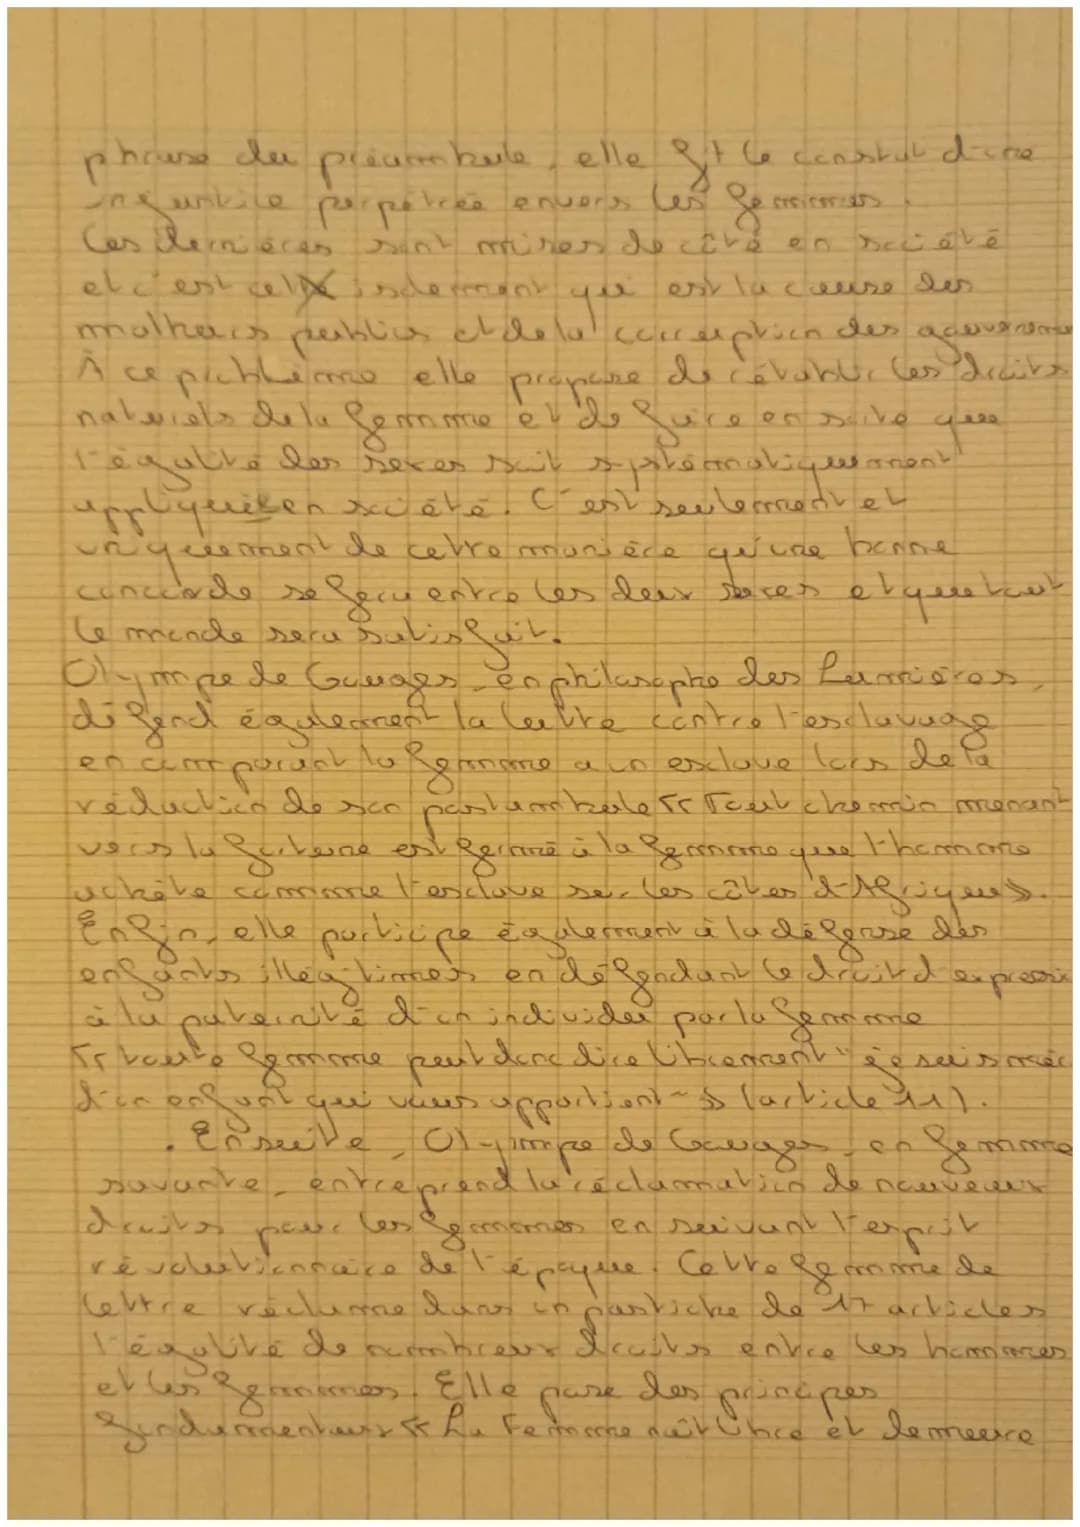 phrase du préambule, elle fit le constat d'une
injustice perpétrée envers les femmes.
Ces dernières sont mises de côté en société
et c'est cet isolement qui est la cause des
malheurs publics et de la corruption des gouverneme
À ce problème elle propose de rétablir les droits
naturels de la femme et de faire en sorte que
l'égalité des sexes soit systématiquement
appliquée en société. C'est seulement et
uniquement de cette manière qu'une bonne
concorde se fera entre les deux sexes et que tout
le monde sera satisfait.
Olympe de Gouges, en philosophe des Lumières,
défend également la lutte contre l'esclavage
en comparant la femme a un esclave lors de la
rédaction de son postambule « Tout chemin menant
vers la fortune est fermé à la femme que l'homme
achète comme l'esclave sur les côtes d'Afrique ».
Enfin, elle participe également à la défense des
enfants illégitimes en défendant le droit d'expressi
à la paternité d'un individu par la femme
« toute femme peut donc dire librement " je suis mèr
d'un enfant qui vous appartient » (article 11).
. Ensuite, Olympe de Gouges, en femme
savante, entreprend la réclamation de nouveaux
droits pour les femmes en suivant l'esprit
révolutionnaire de l'époque. Cette femme de
lettre réclame dans un pastiche de 17 articles
l'égalité de nombreux droits entre les hommes
et les femmes. Elle pose des principes
fondamentaux « La Femme naît libre et demeure